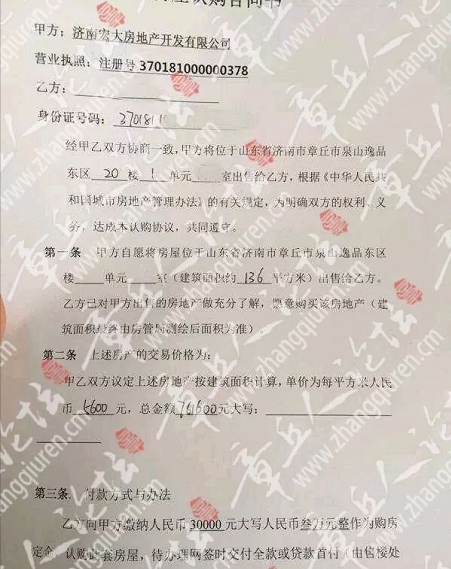 认购合同书
甲方：济南宏大房地产开发有限公司
营业执照：注册号370181000000378
乙方：
身份证号码：370181
经甲乙双方协商一致，甲方将位于山东省济南市章丘市泉山逸品
东区 20 楼 1 单元 室出售给乙方，根据《中华人民共
和国城市房地产管理办法》的有关规定，为明确双方的权利、义
务，达成本认购协议，共同遵守。
第一条 甲方自愿将房屋位于山东省济南市章丘市泉山逸品东区
楼 单元 室（建筑面积约 136 平方米）出售给乙方。
乙方已对甲方出售的房地产做充分了解，愿意购买该房地产（建
筑面积最终由房管局测绘后面积为准）
第二条 上述房产的交易价格为：
甲乙双方议定上述房地产按建筑面积计算，单价为每平方米人民
币 5600 元，总金额 761600 元大写：
第三条 付款方式与办法
乙方向甲方缴纳人民币 30000 元大写人民币叁万元整作为购房
定金，认购此套房屋，待办理网签时交付全款或贷款首付（由售楼处
章丘人论坛
www.zhangqiuren.cn